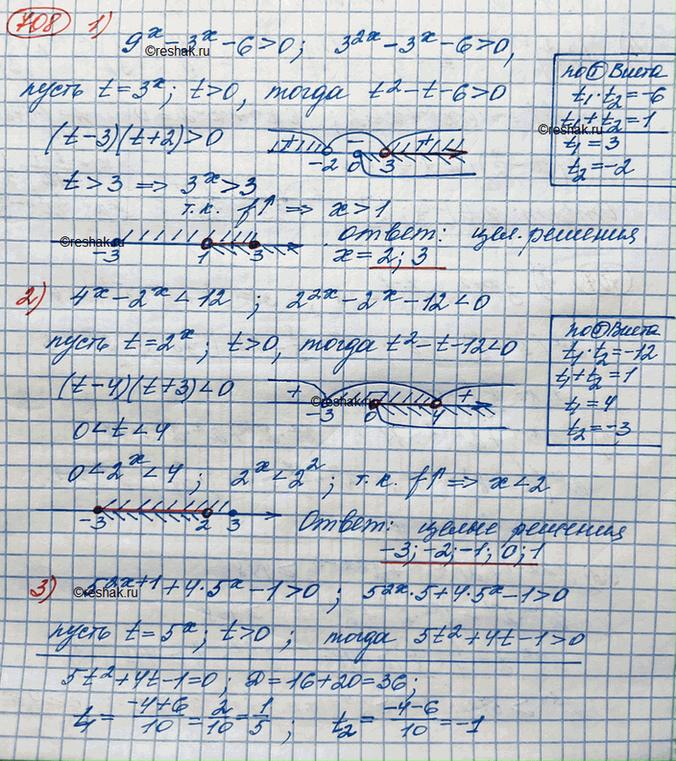 708 1) 9^x - 3^x - 6 > 0; 3^{2x} - 3^x - 6 > 0,
©reshak.ru
пусть t = 3^x; t > 0, тогда t² - t - 6 > 0
по т. Виета
t₁ · t₂ = -6
t₁ + t₂ = 1
t₁ = 3
t₂ = -2
(t-3)(t+2) > 0
+ - +
-2 0 3
t > 3 => 3^x > 3
т.к. f↑ => x > 1
©reshak.ru
-3 1 3
Ответ: цел. решения
x = 2; 3
2) 4^x - 2^x < 12; 2^{2x} - 2^x - 12 < 0
пусть t = 2^x; t > 0, тогда t² - t - 12 < 0
по т. Виета
t₁ · t₂ = -12
t₁ + t₂ = 1
t₁ = 4
t₂ = -3
(t-4)(t+3) < 0
+ - +
©reshak.ru
-3 0 4
0 < t < 4
0 < 2^x < 4; 2^x < 2²; т.к. f↑ => x < 2
-3 2 3
Ответ: целые решения
-3; -2; -1; 0; 1
3) 5^{2x+1} + 4·5^x - 1 > 0; 5^{2x}·5 + 4·5^x - 1 > 0
©reshak.ru
пусть t = 5^x; t > 0; тогда 5t² + 4t - 1 > 0
5t² + 4t - 1 = 0; D = 16 + 20 = 36;
t₁ = (-4+6)/10 = 2/10 = 1/5; t₂ = (-4-6)/10 = -1